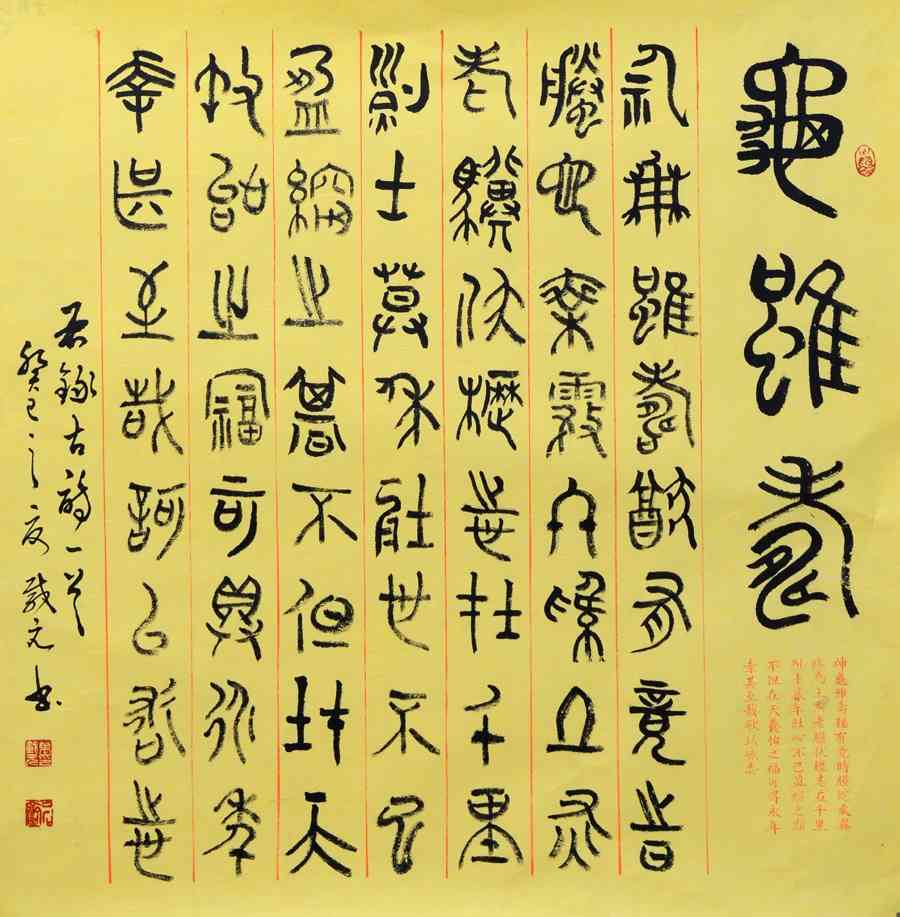 龜雖壽
神龜雖壽猶有竟時
騰蛇乘霧終為土灰
老驥伏櫪志在千里
烈士暮年壯心不已
盈縮之期不但在天
養怡之福可得永年
幸甚至哉歌以詠志
神龜雖壽猶有竟時騰蛇乘霧
終為土灰老驥伏櫪志在千里
烈士暮年壯心不已盈縮之期
不但在天養怡之福可得永年
幸甚至哉歌以詠志
右錄古詩一首
癸巳之夏 元書